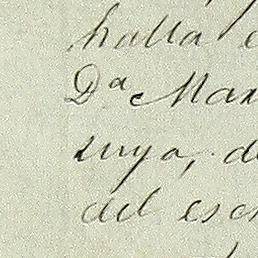 halla
Dª Mar
suya, de
del es